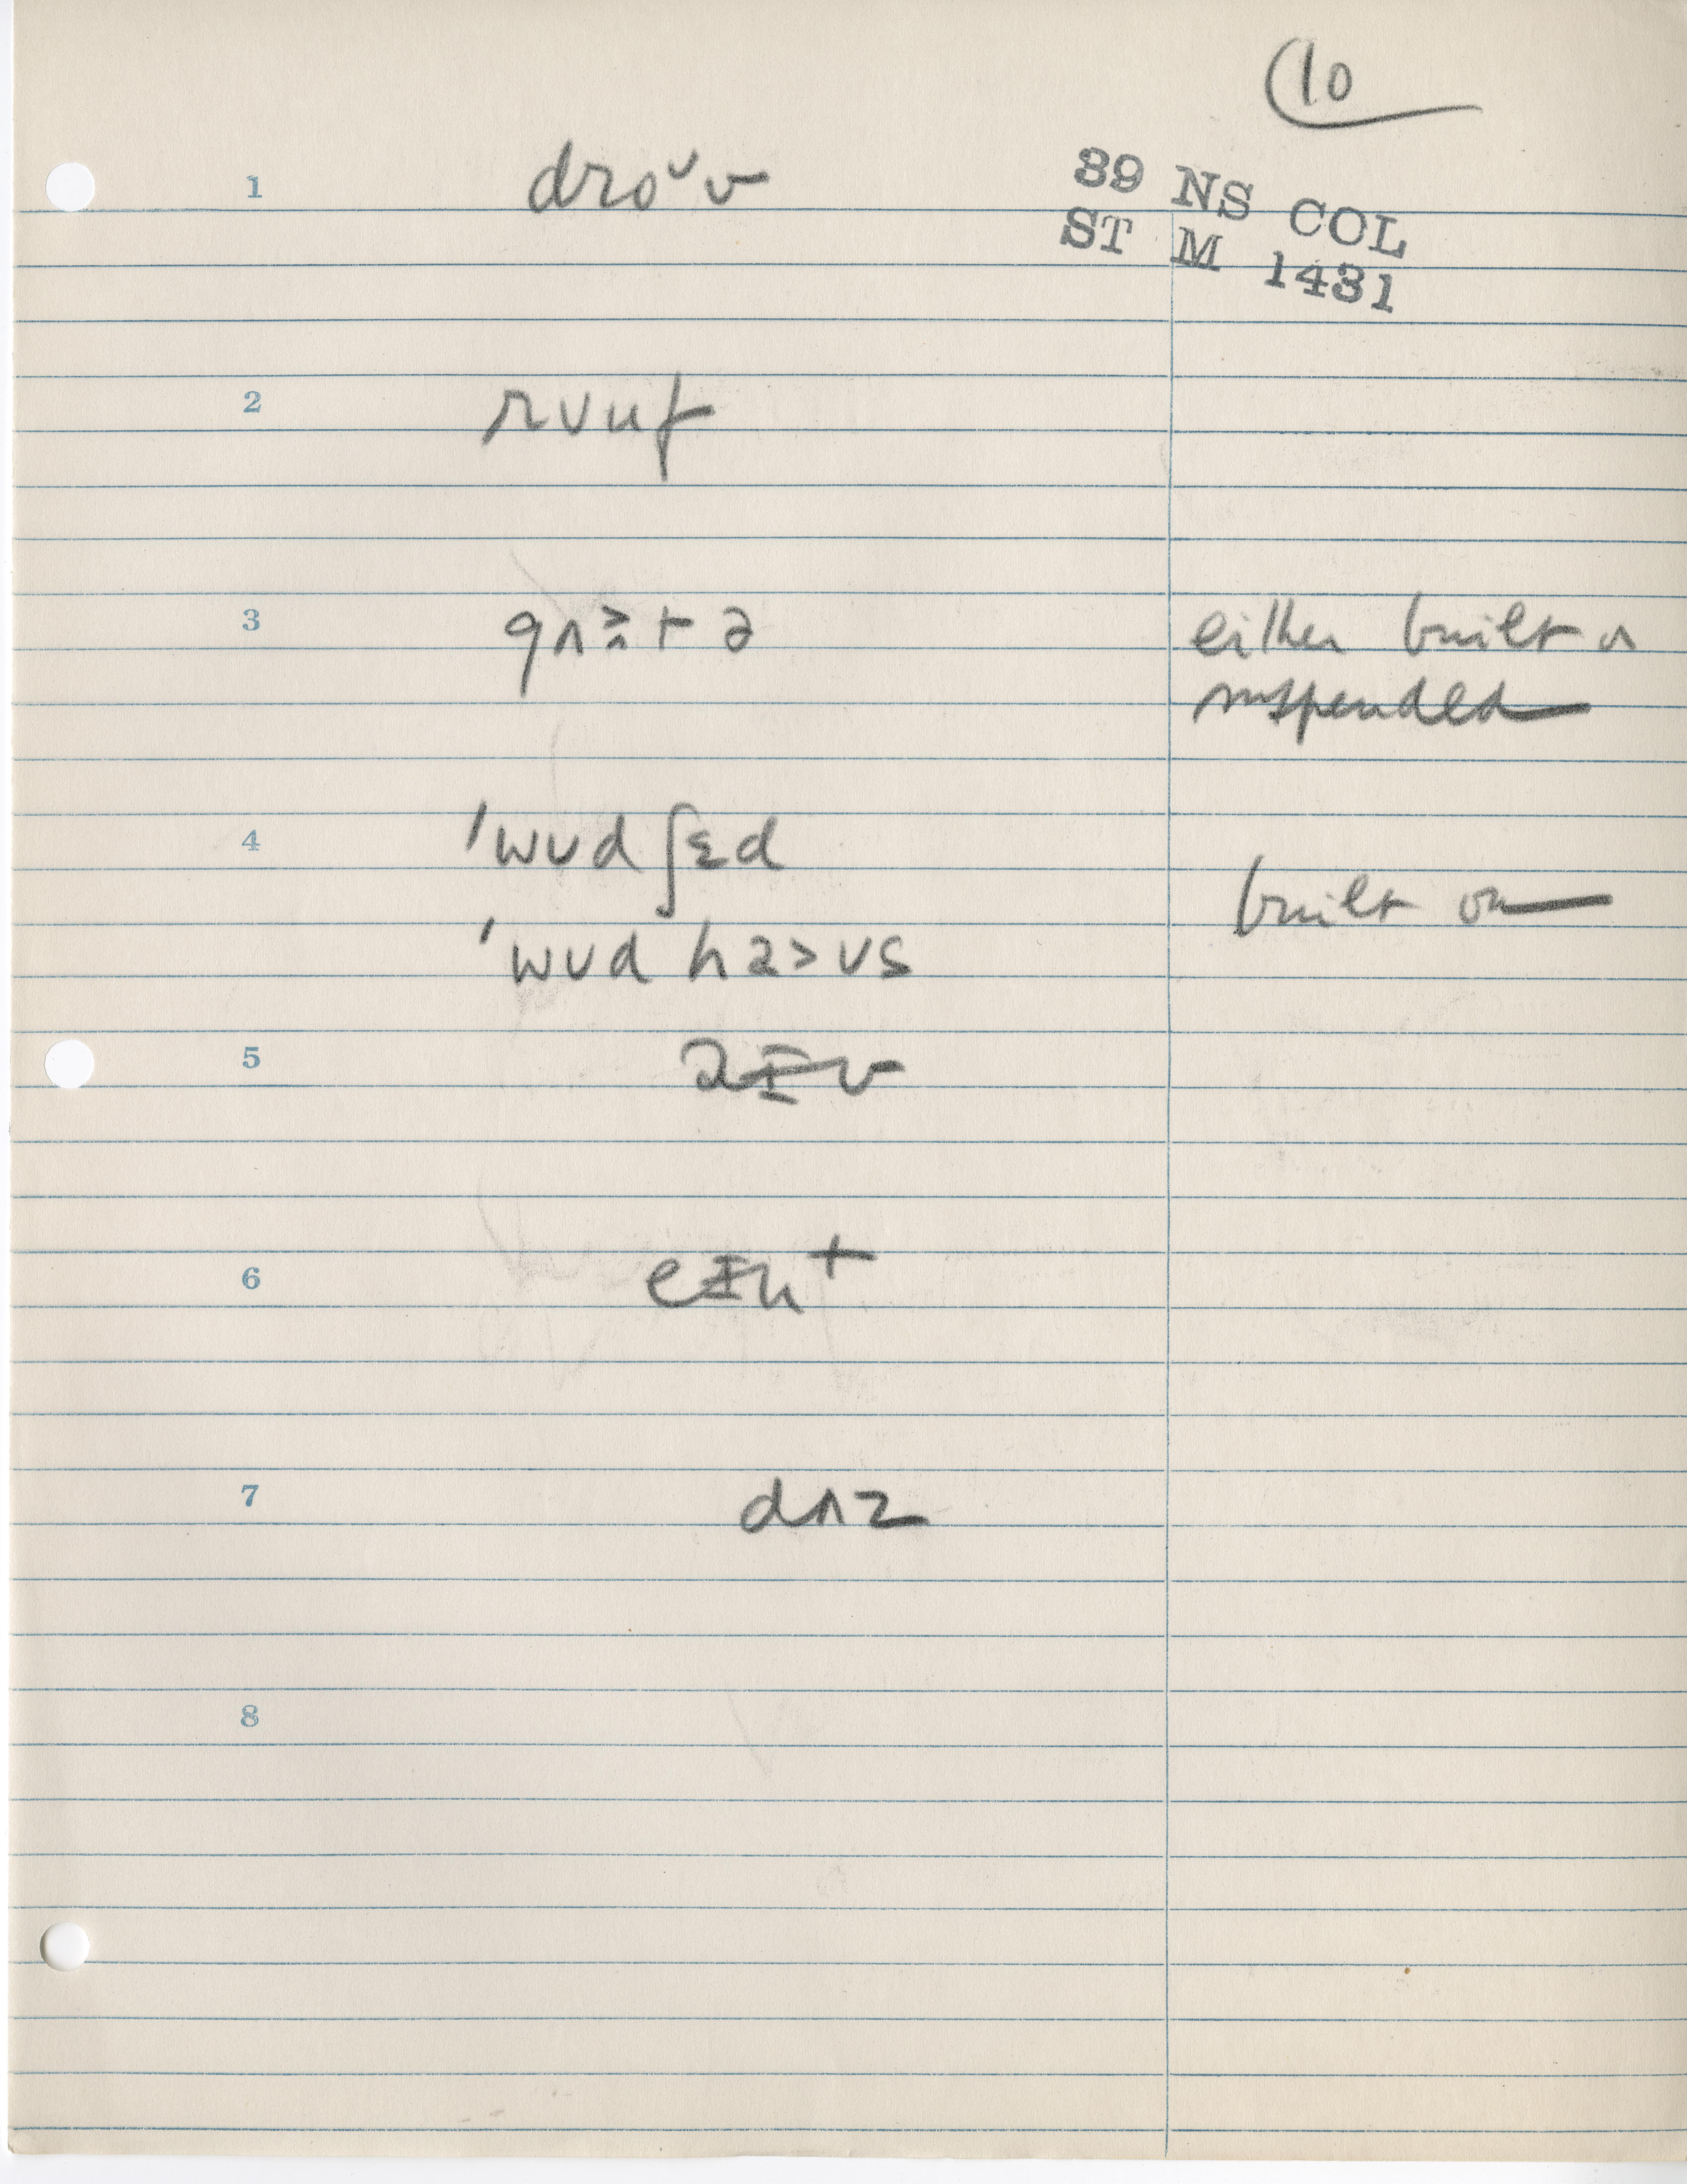 10
39 NS COL
ST M 1431
1 droᵛv
2 rvuf
3
either built or
suspended
4 'wʊd ʃɛd
built on
'wʊd haʊs
5
6
7 dʌz
8